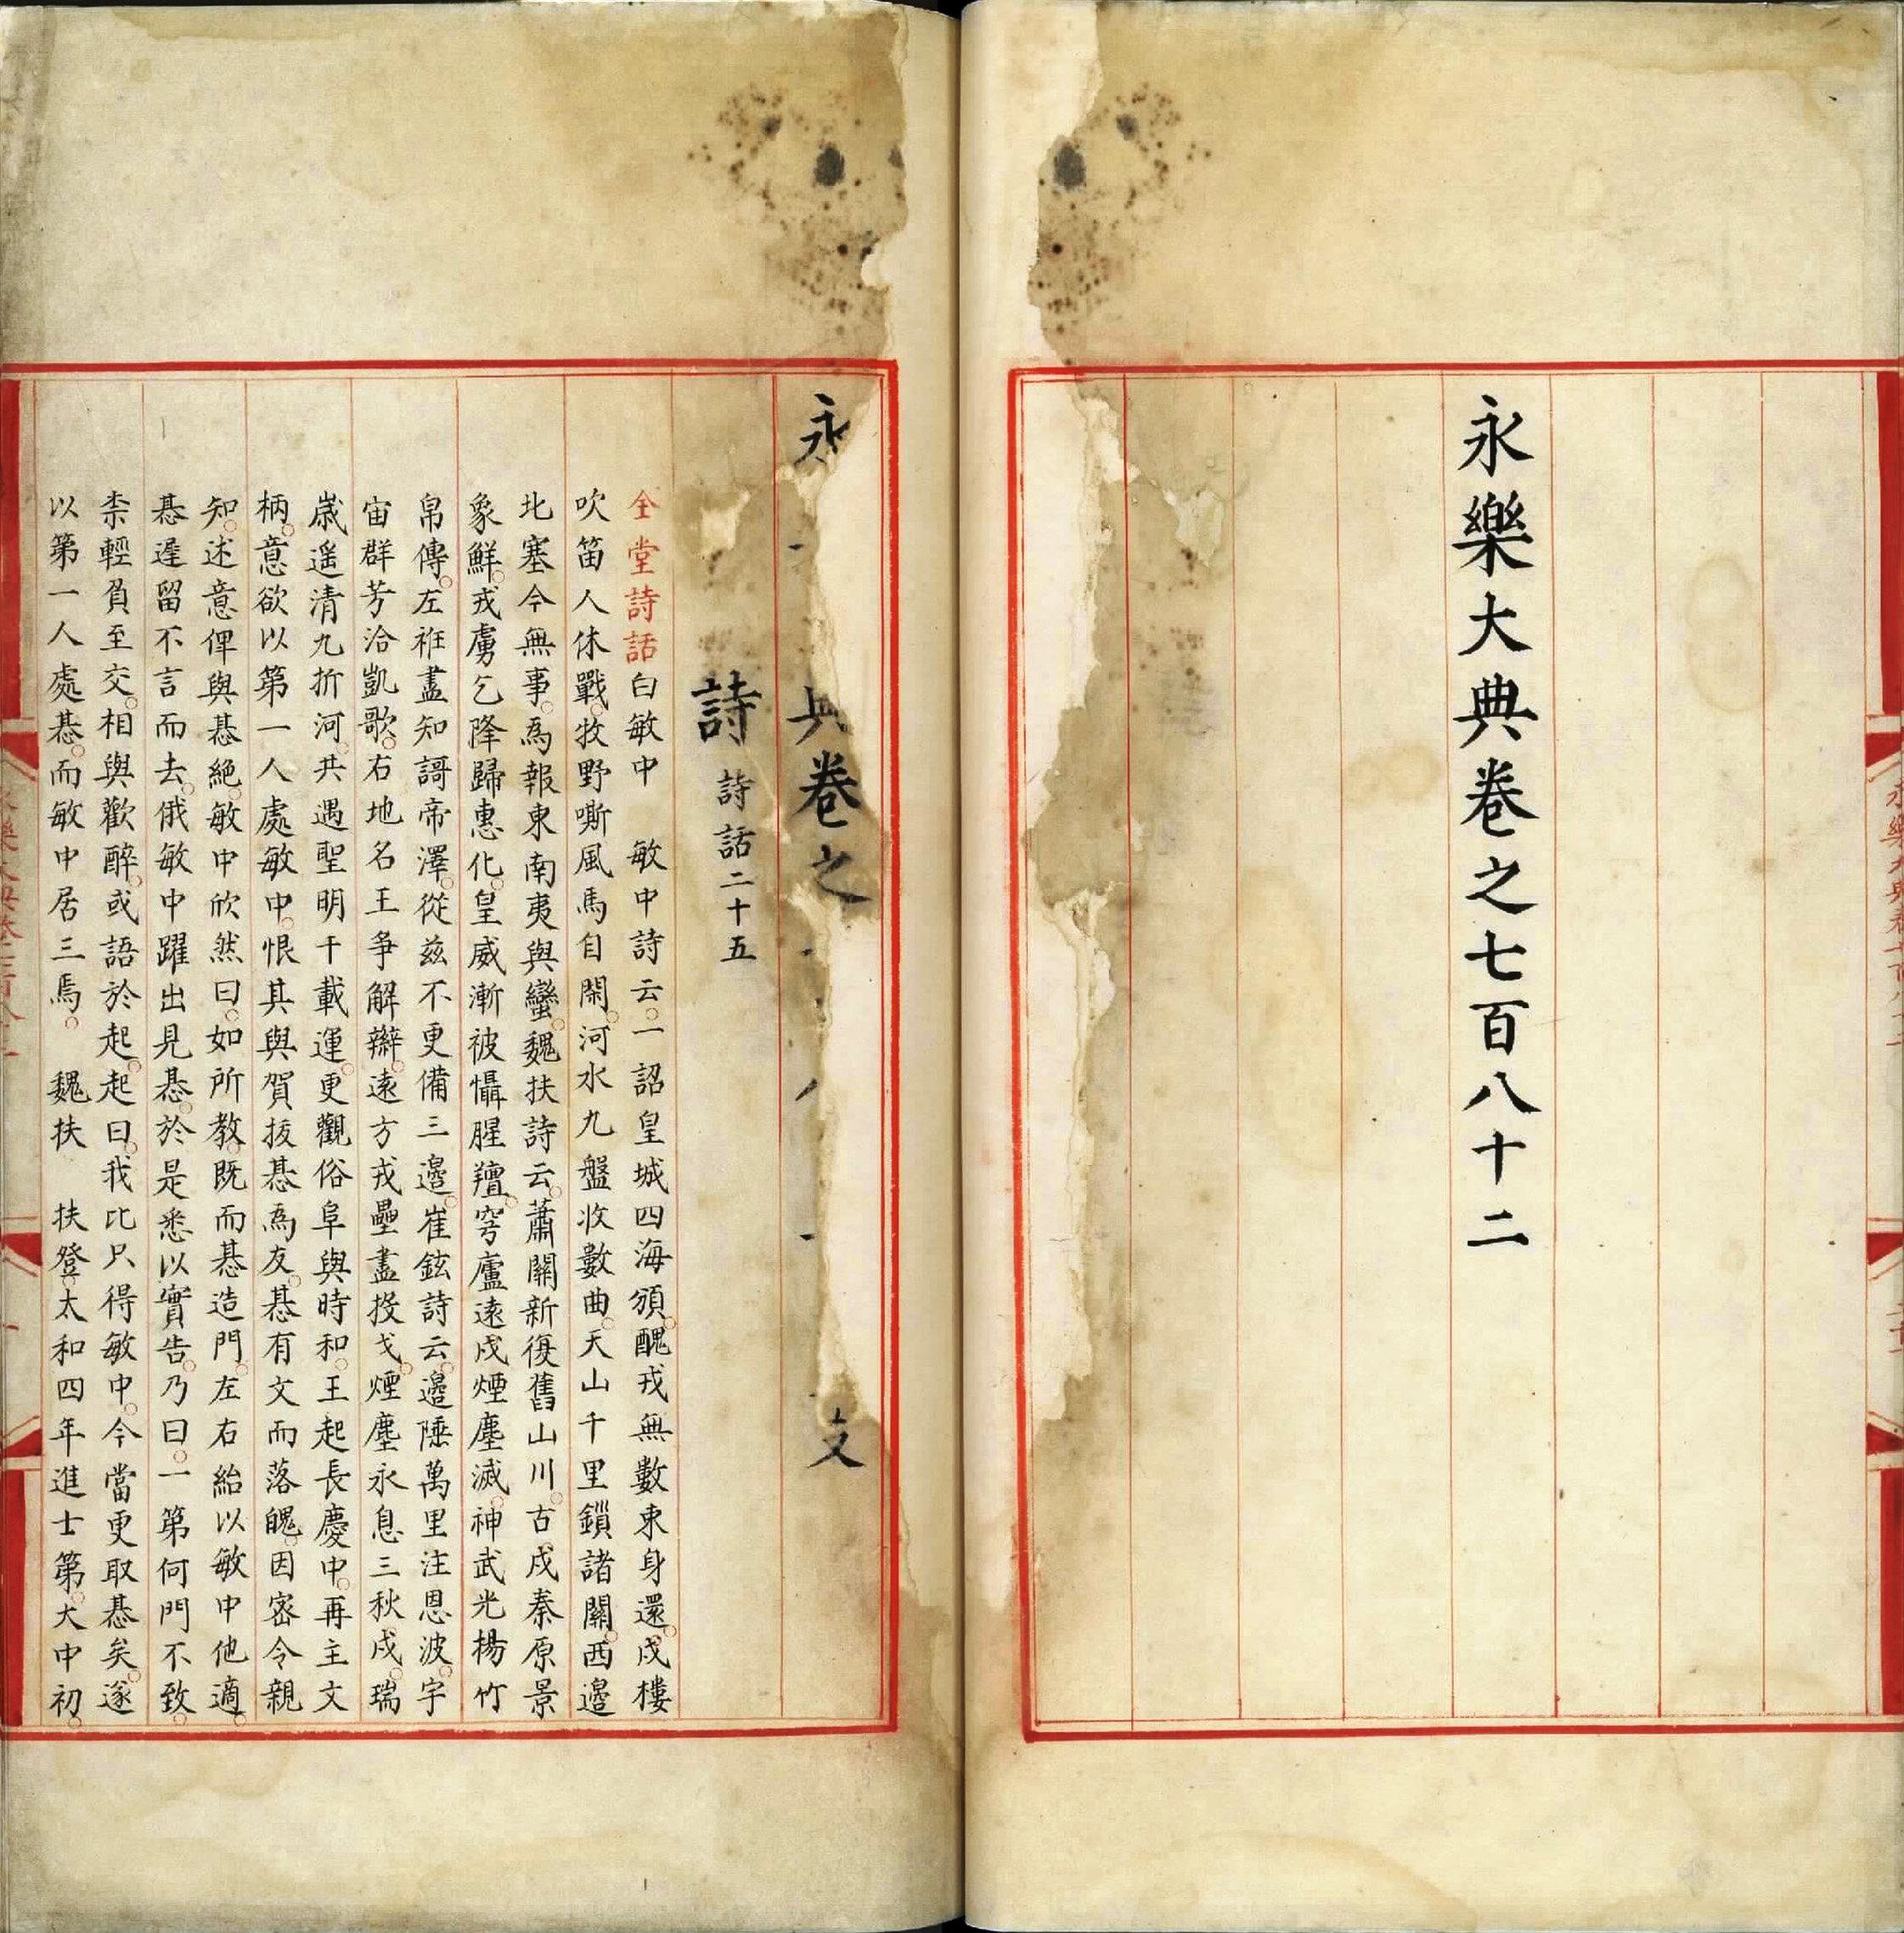 永樂大典卷之七百八十二
永 典卷之 支
詩 詩話二十五
全堂詩話白敏中 敏中詩云一詔皇城四海頒醜戎無數束身還戍樓
吹笛人休戰牧野嘶風馬自閑河水九盤收數曲天山千里鎖諸關西邊
北塞今無事為報東南夷與蠻魏扶詩云蕭關新復舊山川古戍秦原景
象鮮戎虜乞降歸惠化皇威漸被懾腥羶穹廬遠戍煙塵滅神武光楊竹
帛傳左袵盡知謌帝澤從茲不更備三邊崔鉉詩云邊陲萬里注恩波宇
宙群芳洽凱歌右地名王爭解辮遠方戎壘盡投戈煙塵永息三秋戍瑞
歲遥清九折河共遇聖明千載運更觀俗阜與時和王起長慶中再主文
柄意欲以第一人處敏中恨其與賀拔惎為友惎有文而落魄因密令親
知述意俾與惎絕敏中欣然曰如所教既而惎造門左右紿以敏中他適
惎遲留不言而去俄敏中躍出見惎於是悉以實告乃曰一第何門不致
柰輕負至交相與歡醉或語於起起曰我比只得敏中今當更取惎矣遂
以第一人處惎而敏中居三焉 魏扶 扶登太和四年進士第大中初